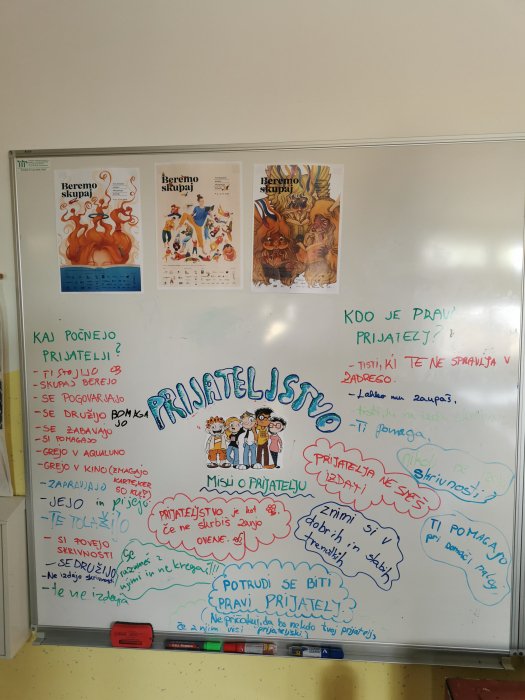 Beremo
skupaj
Beremo
skupaj
Beremo
skupaj
KAJ POČNEJO
PRIJATELJI?
- TI STOJIJO
- SKUPAJ BEREJO
- SE POGOVARJAJO
- SE DRUŽIJO POMAGA
JO
- SE ZABAVAJO
- SI POMAGAJO
- GREJO V
- GREJO V KINO
- ZAPRAVLJAJO
- JEJO in pijejo
- TE TOLAŽIJO
- SI POVEJO
SKRIVNOSTI
- SE DRUŽIJO
- Ne izdajo skrivnosti
- te ne izdaja
PRIJATELJSTVO
MISLI O PRIJATELJU
KDO JE PRAVI
PRIJATELJ?
- TISTI, KI TE NE SPRAVLJA V
ZADREGO.
- Lahko mu zaupaš.
- Ti pomaga.
PRIJATELJA NE SMEŠ
IZDATI
skrivnosti?
PRIJATELJSTVO je kot
če ne skrbiš zanjo
OVENE.
Znimi si v
dobrih in slabih
trenutkih
TI POMAGAJO
pri domači
Se
razumeš z
njimi in ne kregaš!!!
POTRUDI SE BITI
PRAVI PRIJATELJ.
Ne pričakuj, da bo nekdo tvoj prijatelj,
če z njim nisi prijateljski